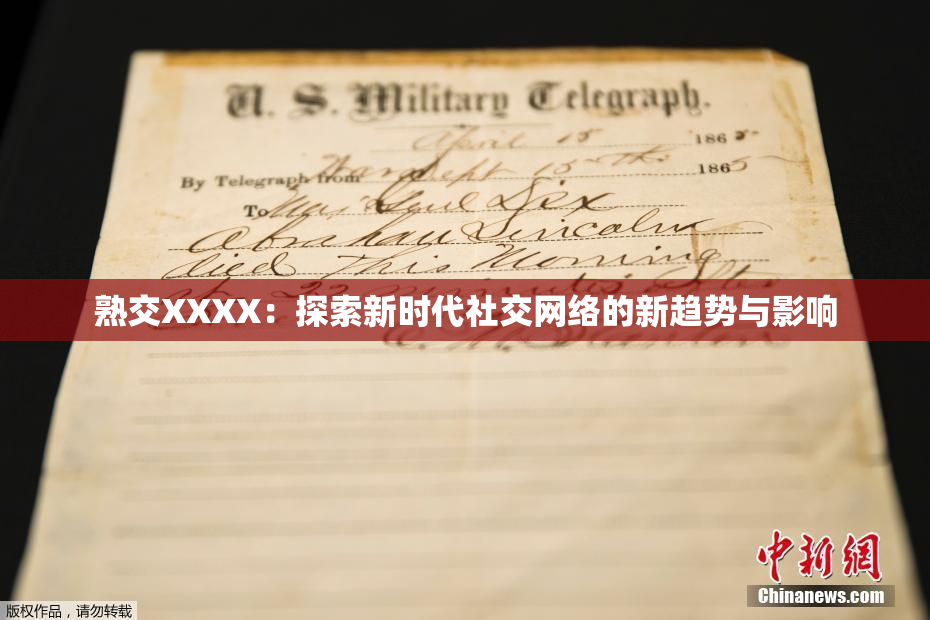 U. S. Military Telegraph.
April 15 1865.
By Telegraph from War Dept 15th 1865
To Maj Genl Dix
Abraham Lincoln
died This Morning
at 22 minutes after
熟交XXXX：探索新时代社交网络的新趋势与影响
中新网
Chinanews.com
版权作品，请勿转载